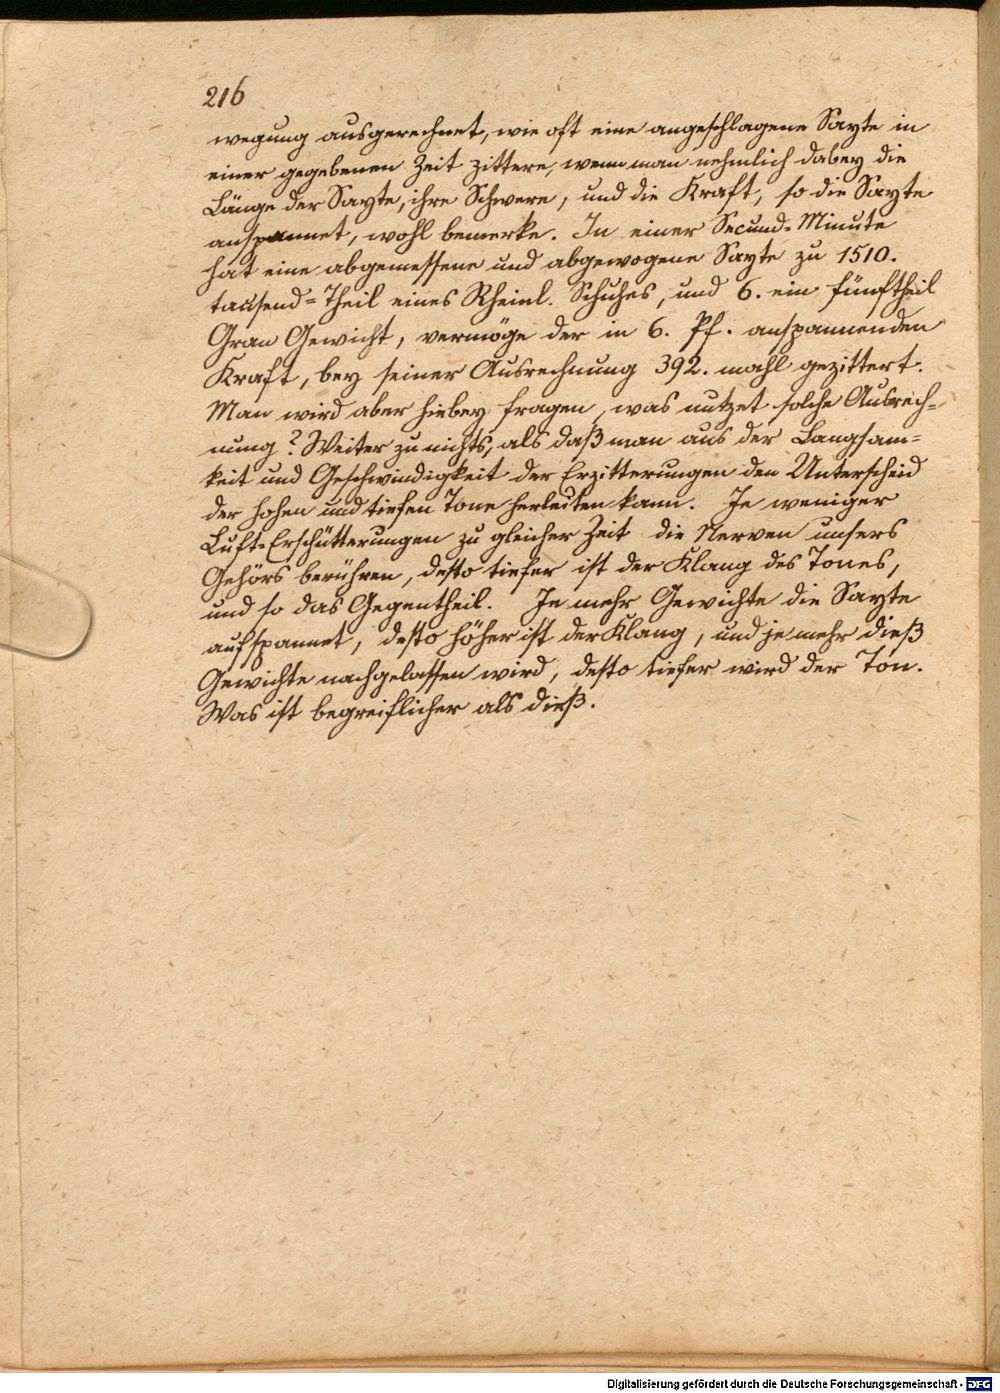 216
wegung ausgerechnet, wie oft eine angeschlagene Sayte in
einer gegebenen Zeit zittere, wenn man nehmlich dabey die
Länge der Sayte, ihre Schwere, und die Kraft, so die Sayte
anspannet, wohl bemerke. In einer Secund-Minute
hat eine abgemessene und abgewogene Sayte zu 1510.
tausend-Theil eines Rheinl. Schuhes, und 6. ein fünftheil
Gran Gewicht, vermöge der in 6. Pf. anspannenden
Kraft, bey seiner Ausrechnung 392. mahl gezittert.
Man wird aber hiebey fragen, was nutzet solche Ausrech=
nung? Weiter zu nichts, als daß man aus der Langsam=
keit und Geschwindigkeit der Erzitterungen den Unterscheid
der hohen und tiefen Tone herleiten kann. Je weniger
Luft-Erschütterungen zu gleicher Zeit die Nerven unsers
Gehörs berühren, desto tiefer ist der Klang des Tones,
und so das Gegentheil. Je mehr Gewichte die Sayte
aufspannet, desto höher ist der Klang, und je mehr dieß
Gewichte nachgelassen wird, desto tiefer wird der Ton.
Was ist begreiflicher als dieß.
Digitalisierung gefördert durch die Deutsche Forschungsgemeinschaft - DFG